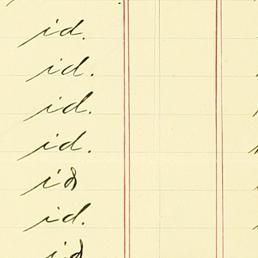 id.
id.
id.
id.
id
id.
id